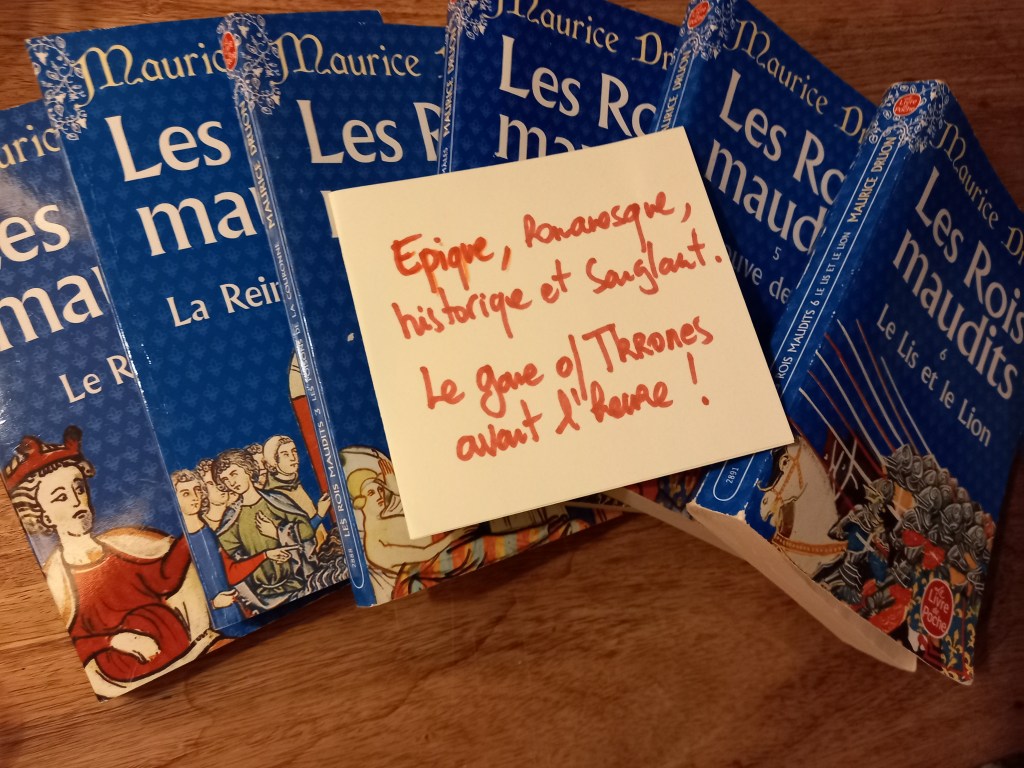 Maurice
Les
mau
Le R
Maurice
Les
mau
La Rein
MAURICE DRUON
LES ROIS MAUDITS 3 LES POISONS DE LA COURONNE
2888
Maurice
Les R
MAURICE DRUON
Maurice Dr
Les Roi
mau
Maurice Dr
Les Ro
maud
5
uve de
Le Livre de Poche
MAURICE DRUON
ROIS MAUDITS 6 LE LIS ET LE LION
2891
Maurice D
Les Rois
maudits
6
Le Lis et le Lion
Le Livre de Poche
Epique, Romanesque,
historique et Sanglant.
Le game of THRONES
avant l'heure !